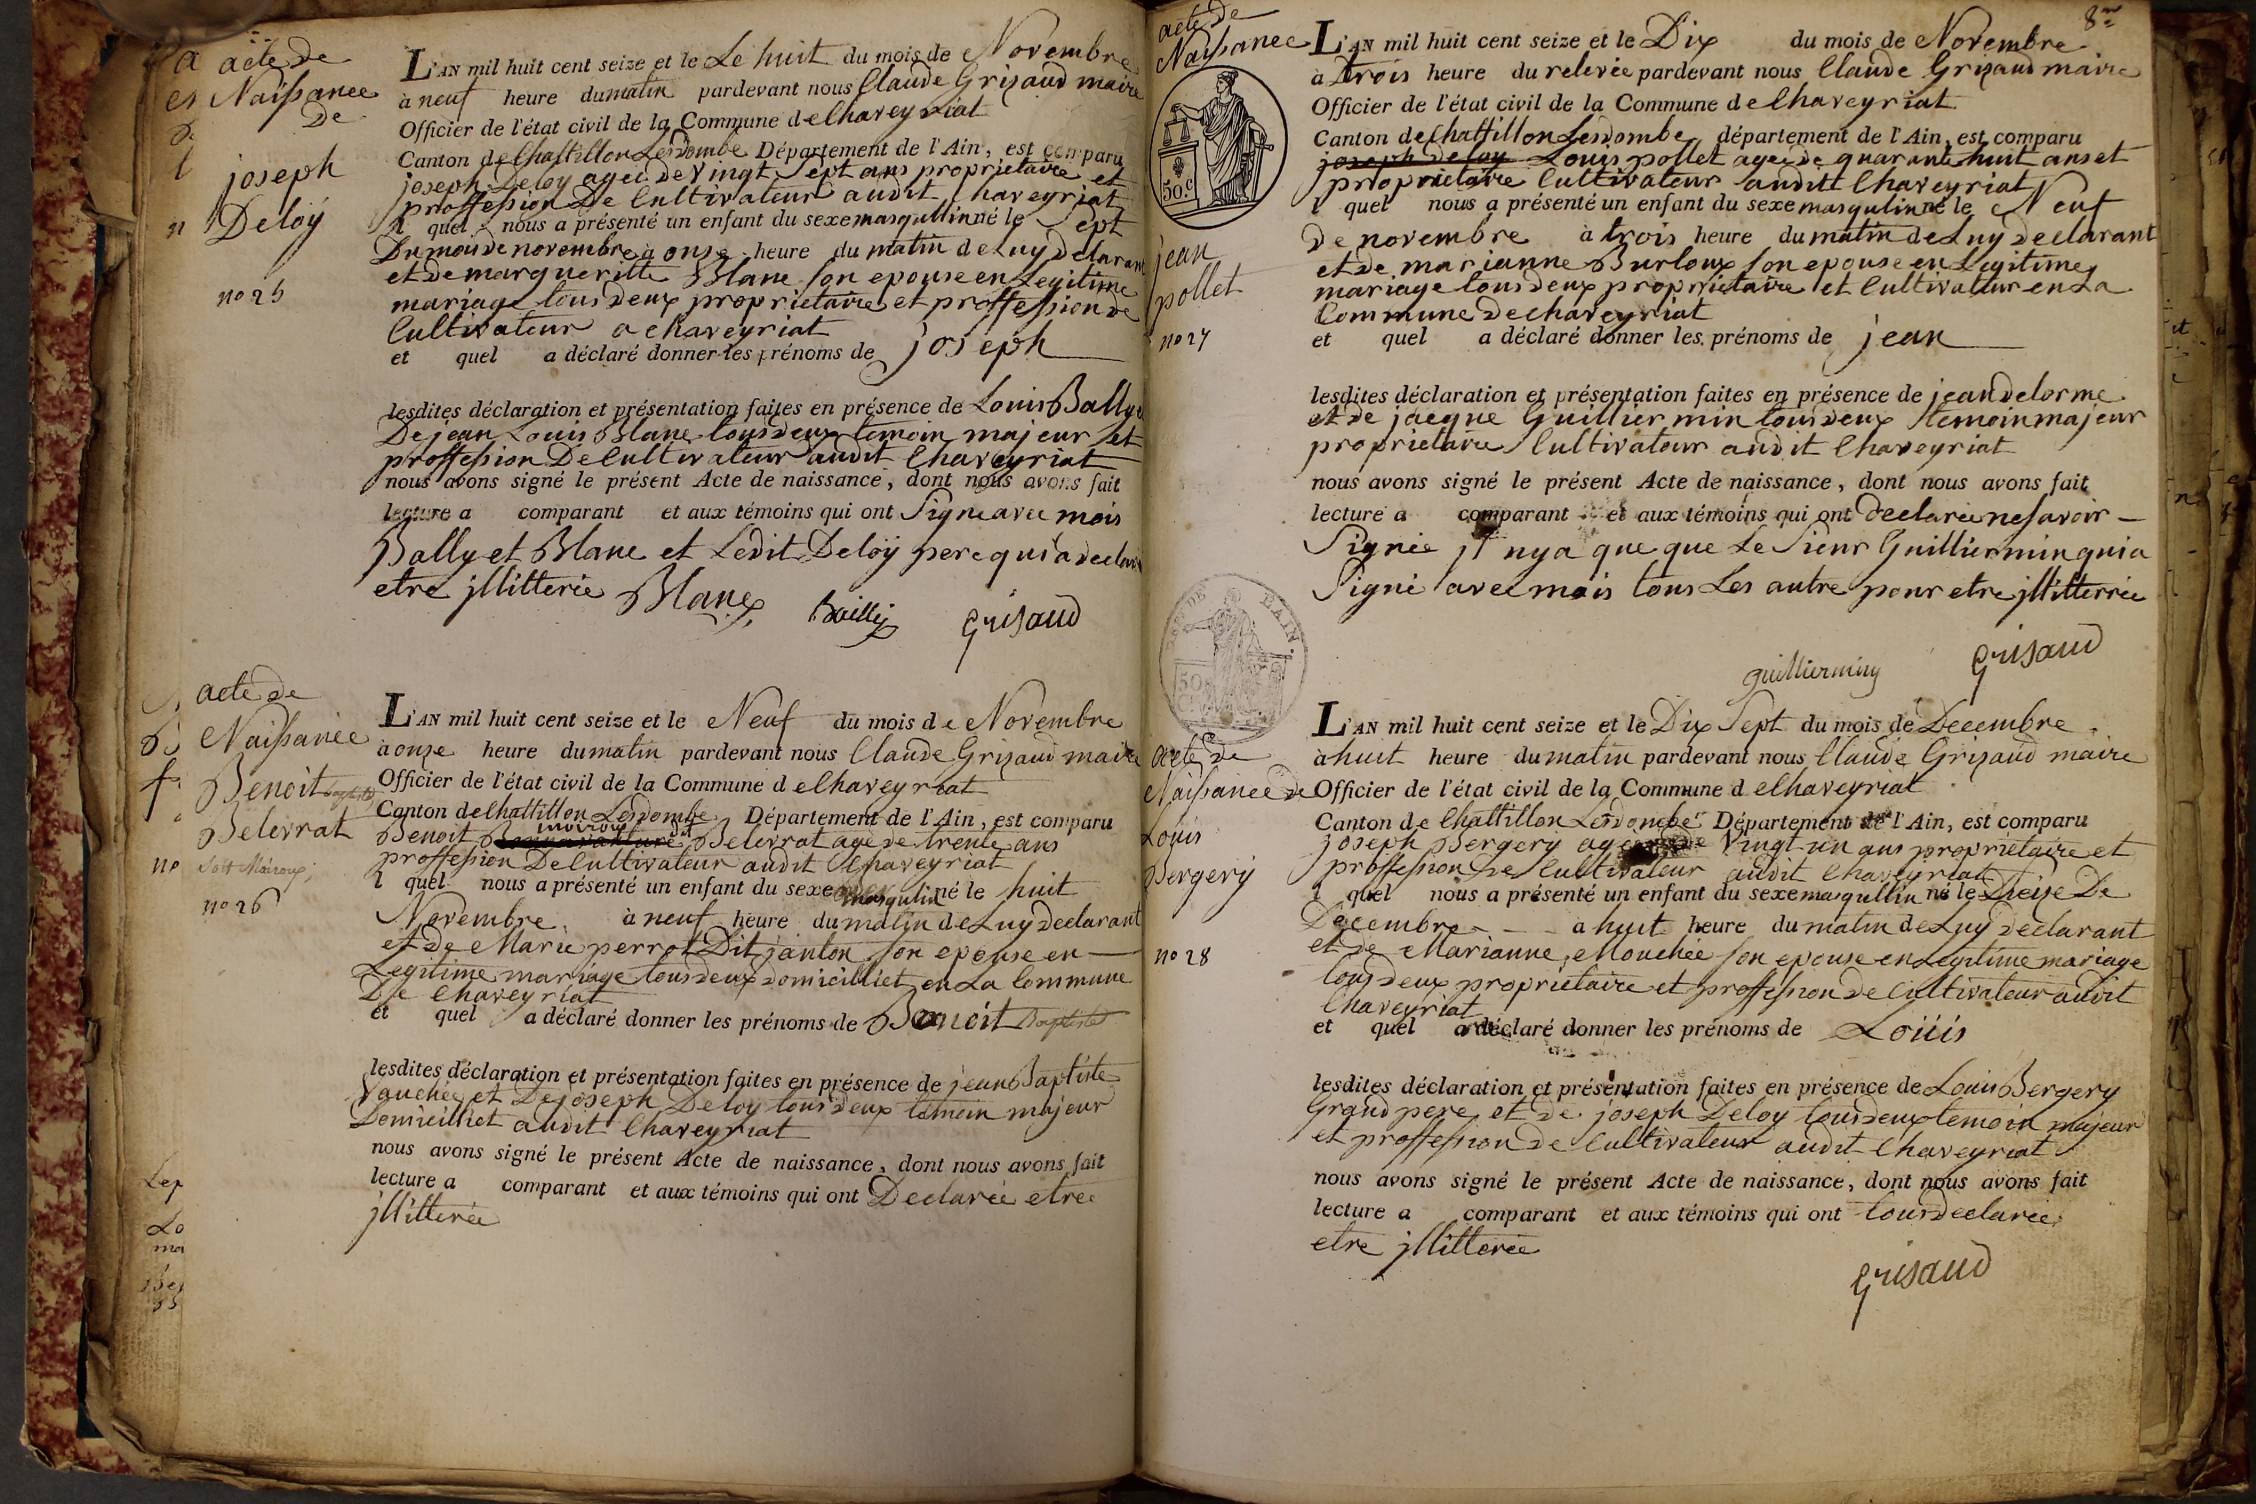 acte de
Naissance
de
joseph
Deloÿ
no 25
L'AN mil huit cent seize et le Le huit du mois de Novembre
à neuf heure du matin pardevant nous Claude Grizaud maire
Officier de l'état civil de la Commune de Chaveyriat
Canton de Chattillon Lesdombe Département de l'Ain, est comparu
joseph Deloy agee de vingt Sept ans propriétaire et
proffession De Cultivateur audit haveyriat
l quel nous a présenté un enfant du sexe masqullin né le Sept
Du mois de novembre à onze heure du matin de Luy declarant
et de margueritte Blanc Son epouse en Legitime
mariage tous deux proprietaire et proffession de
Cultivateur a chaveyriat
et quel a déclaré donner les prénoms de joseph
lesdites déclaration et présentation faites en présence de Louis Bally et
De jean Louis Blanc tous deux temoin majeur et
proffession De Cultivateur audit Chaveyriat
nous avons signé le présent Acte de naissance, dont nous avons fait
lecture a comparant et aux témoins qui ont Signe avec mois
Bally et Blanc et Ledit Deloÿ pere qui a declaré
etre jllitterée Blanc Bailly Grisaud
acte de
Naissance
Benoit Baptiste
Belevrat
no 26
L'AN mil huit cent seize et le Neuf du mois de Novembre
à onze heure du matin pardevant nous Claude Grizaud maire
Officier de l'état civil de la Commune de Chaveyriat
Canton de Chattillon Lesdombe Département de l'Ain, est comparu
Benoit dit Belevrat agé de trente ans
proffession De Cultivateur audit Chaveyriat
l quel nous a présenté un enfant du sexe masqulin né le huit
Novembre à neuf heure du matin de Luy declarant
et de Marie perrot Dit janton Son epouse en
Legitime mariage tous deux domicilliet en La Commune
De Chaveyriat
et quel a déclaré donner les prénoms de Benoit Baptiste
lesdites déclaration et présentation faites en présence de jean Baptiste
Vauchée et De joseph Deloy tous deux temoin majeur
Domicilliet audit Chaveyriat
nous avons signé le présent Acte de naissance, dont nous avons fait
lecture a comparant et aux témoins qui ont Declarée etre
jllitterée
8me
acte de
Naissance
50.c
jean
pollet
no 27
L'AN mil huit cent seize et le Dix du mois de Novembre
à trois heure du relevée pardevant nous Claude Grizaud maire
Officier de l'état civil de la Commune de Chaveyriat
Canton de Chattillon Lesdombe département de l'Ain, est comparu
joseph deloy Louis pollet agee de quarante huit ans et
proprietaire Cultivateur audit Chaveyriat
l quel nous a présenté un enfant du sexe masqulin né le Neuf
de novembre à trois heure du matin de Luy declarant
et de marianne Burloux Son epouse en Legitime
mariage tous deux proprietaire et Cultivateur en La
Commune De chaveyriat
et quel a déclaré donner les prénoms de jean
lesdites déclaration et présentation faites en présence de jean delorme
et de jacque Guilliermin tous deux temoin majeur
proprietaire Cultivateur audit Chaveyriat
nous avons signé le présent Acte de naissance, dont nous avons fait
lecture a comparant et aux témoins qui ont declarée ne savoir
Signée jl nya que que Le Sieur Guilliermin qui a
Signé avec mois tous Les autre pour etre jllitterée
guilliermin Grisaud
acte de
Naissance de
Louis
Bergerÿ
no 28
L'AN mil huit cent seize et le Dix Sept du mois de Decembre
à huit heure du matin pardevant nous Claude Grizaud maire
Officier de l'état civil de la Commune d eChaveyriat
Canton de Chattillon Lesdombe Département de l'Ain, est comparu
joseph Bergery agee de Vingt un ans proprietaire et
proffession De Cultivateur audit Chaveyriat
l quel nous a présenté un enfant du sexe masqullin né le Dieise De
Decembre à huit heure du matin de Luy declarant
et de Marianne Mouchée Son epouse en Legitime mariage
tous deux proprietaire et proffession de Cultivateur audit
Chaveyriat
et quel a déclaré donner les prénoms de Loüis
lesdites déclaration et présentation faites en présence de Louis Bergery
Grand pere et de joseph Deloy tous deux temoin majeur
et proffession de Cultivateur audit Chaveyriat
nous avons signé le présent Acte de naissance, dont nous avons fait
lecture a comparant et aux témoins qui ont tous declarée
etre jllitterée
Grisaud